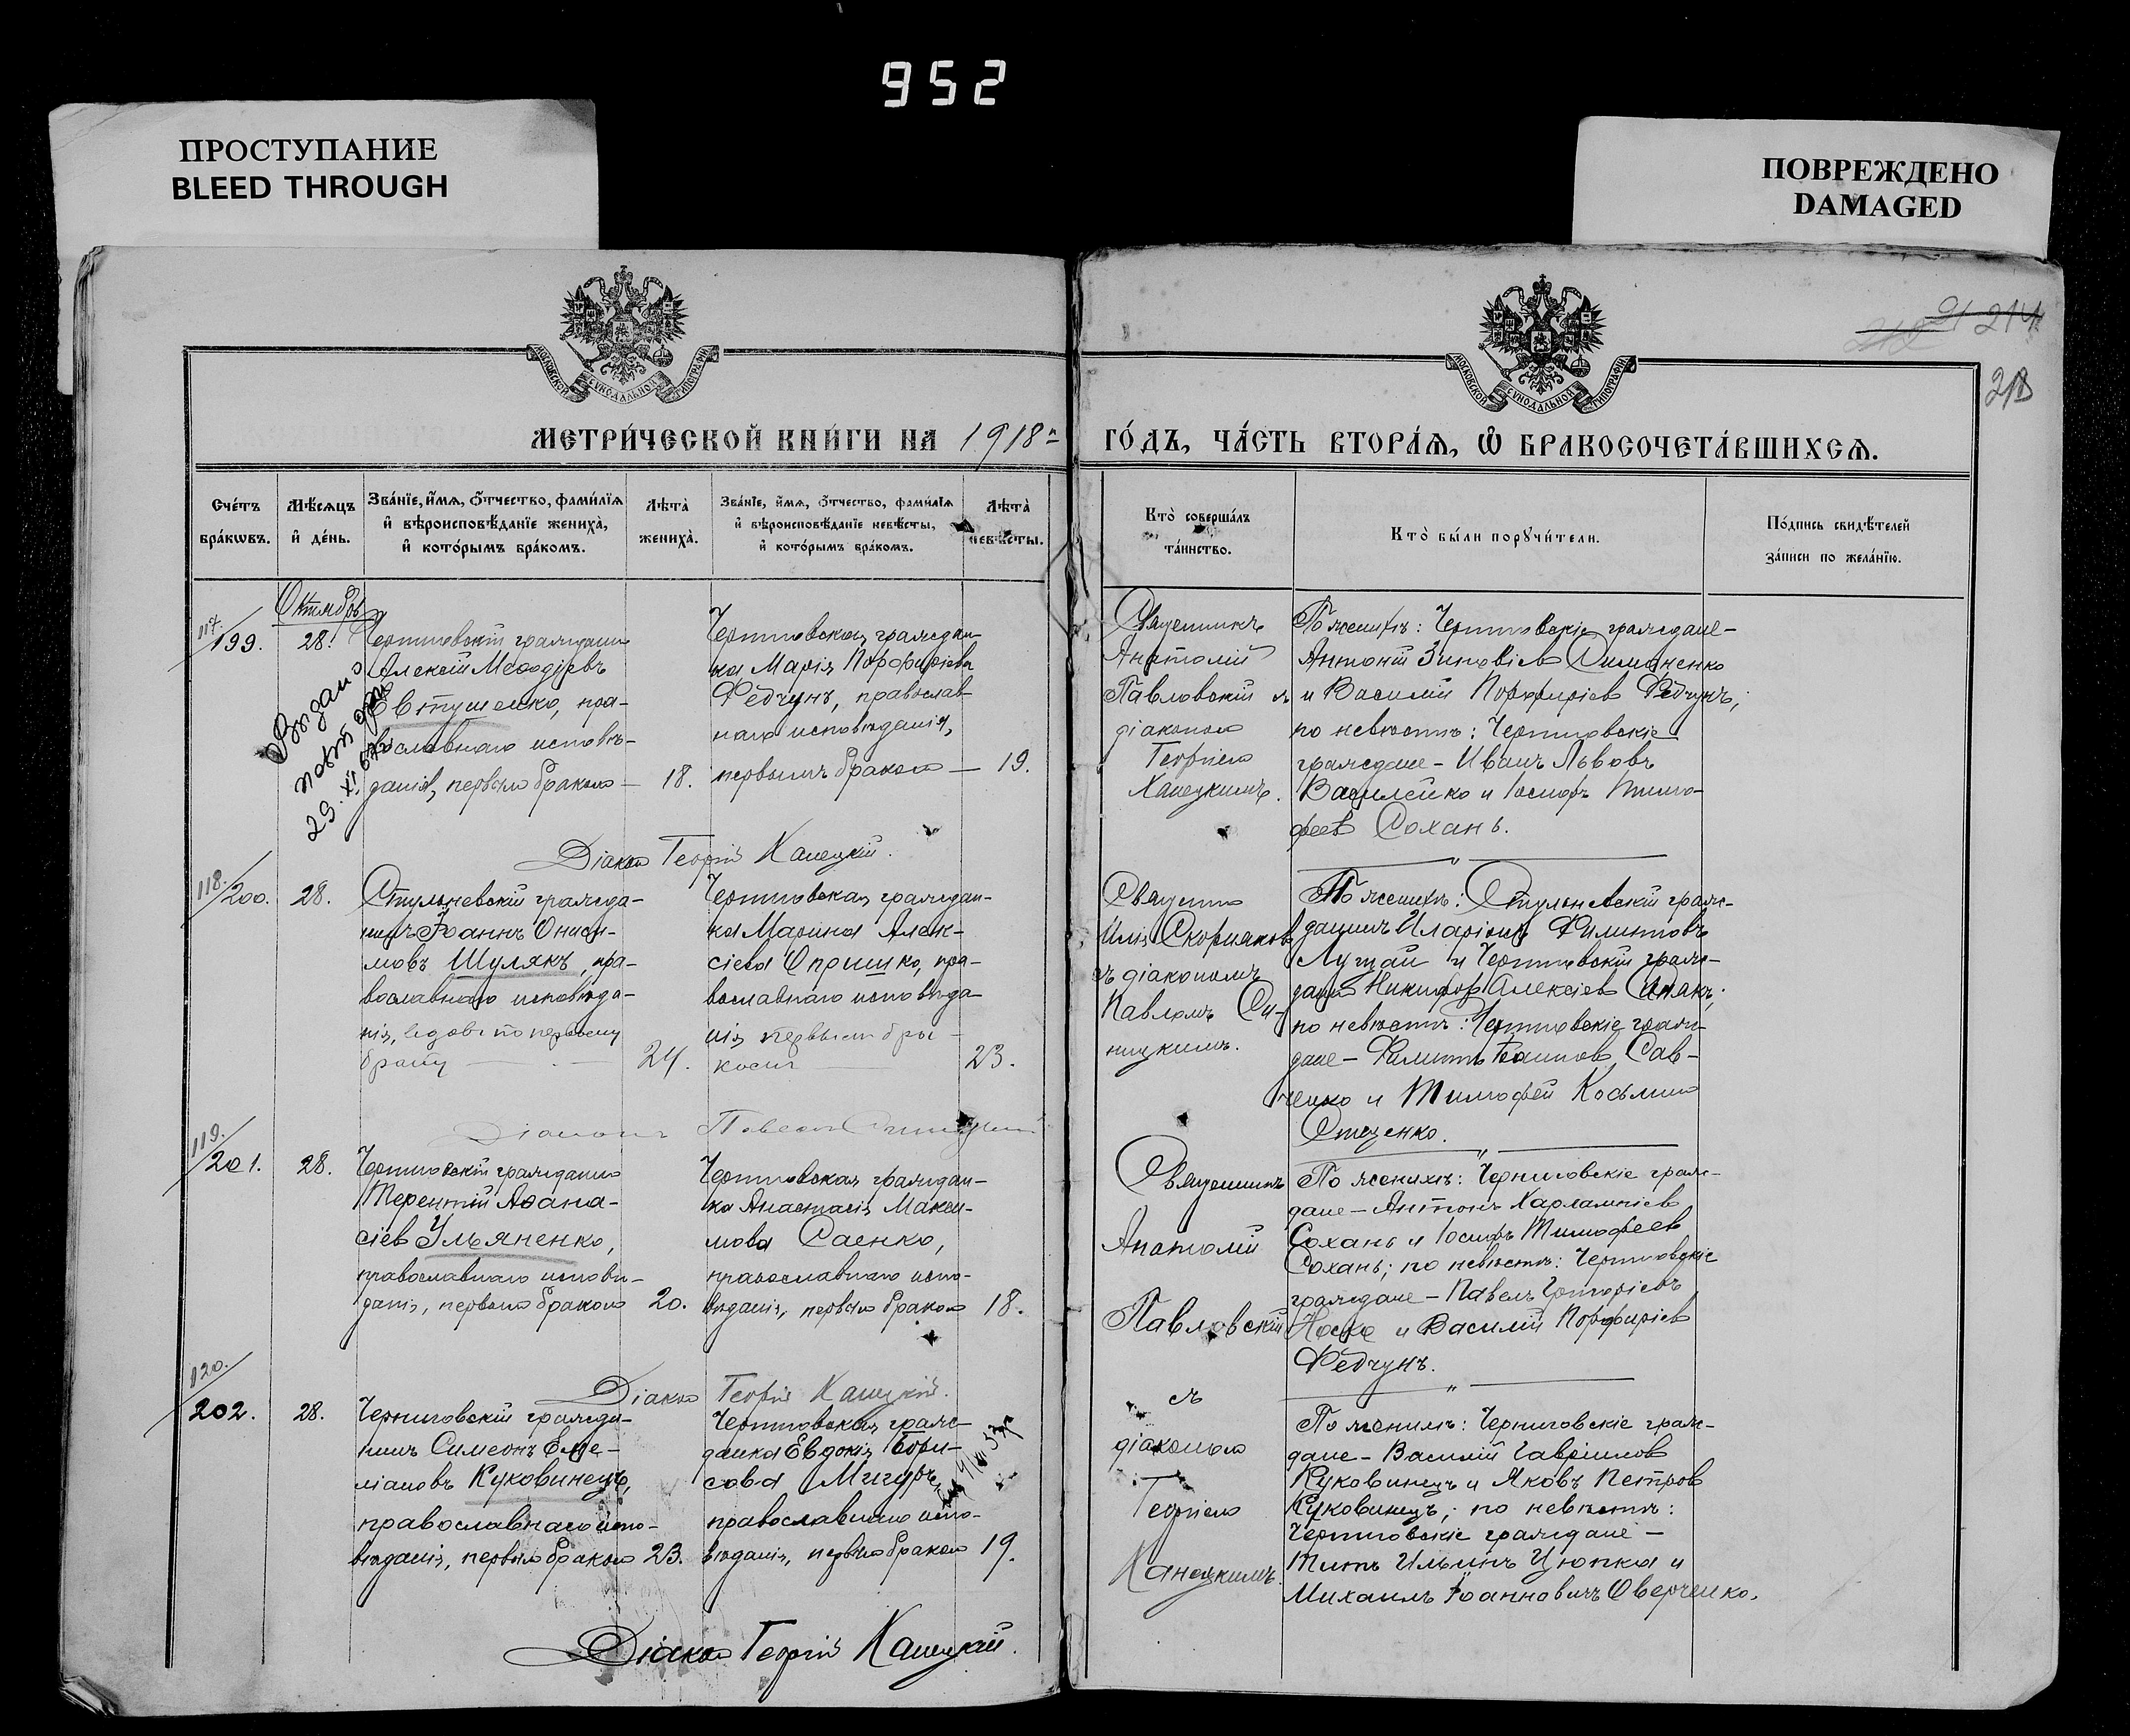 952
ПРОСТУПАНИЕ
BLEED THROUGH
ПОВРЕЖДЕНО
DAMAGED
МОСКОВСКОЙ СѴНОДАЛЬНОЙ ТИПОГРАФІИ
МОСКОВСКОЙ СѴНОДАЛЬНОЙ ТИПОГРАФІИ
214
218
МЕТРИ́ЧЕСКОЙ КНИ́ГИ НА 1918
ГО́ДЪ, ЧА́СТЬ ВТОРА́Ѧ, Ѡ҆ БРАКОСОЧЕТА́ВШИХСѦ.
Сче́тъ
бра́кѡвъ.
Мѣ́сѧцъ
и҆ де́нь.
Зва́нїе, и҆́мѧ, ѻ҆́тчество, фами́лїѧ
и҆ вѣроисповѣ́данїе жениха̀,
и҆ кото́рымъ бра́комъ.
Лѣ́та
жениха̀.
Зва́нїе, и҆́мѧ, ѻ҆́тчество, фами́лїѧ
и҆ вѣроисповѣ́данїе невѣ́сты,
и҆ кото́рымъ бра́комъ.
Лѣ́та
невѣ́сты.
Кто̀ соверша́лъ
та́инство.
Кто̀ бы́ли порꙋчи́тели.
По́дпись свидѣ́телей
за́писи по жела́нїю.
Октябрь
117.
199.
28.
Черниговскій гражданинъ
Алексій Меѳодіевъ
Евтушенко, пра-
вославнаго исповѣ-
данія, первымъ бракомъ —
18.
Черниговская граждан-
ка Марія Порфиріева
Федчунъ, православ-
наго исповѣданія,
первымъ бракомъ —
19.
Выдано
29. XI
Священникъ
Анатолій
Павловскій съ
діакономъ
Георгіемъ
Канецкимъ.
По женихѣ: Черниговскіе граждане —
Антоній Зиновіевъ Симоненко
и Василій Порфиріевъ Федчунъ;
по невѣстѣ: Черниговскіе
граждане — Иванъ Львовъ
Василейко и Іосифъ Тимо-
феевъ Сохань.
Діаконъ Георгій Канецкій.
118.
200.
28.
Стульневскій гражда-
нинъ Іоаннъ Ониси-
мовъ Шулякъ, пра-
вославнаго исповѣда-
нія, вдовъ по первому
браку
24.
Черниговская граждан-
ка Марина Алек-
сіева Опришко, пра-
вославнаго исповѣда-
нія первымъ бра-
комъ
23.
Священникъ
Илія Скорняковъ
съ діакономъ
Павломъ Си-
ницкимъ.
По женихѣ: Стульневскій граж-
данинъ Иларіонъ Филипповъ
Лутай и Черниговскій граж-
данинъ Никифоръ Алексіевъ Синякъ;
по невѣстѣ: Черниговскіе граж-
дане — Филиппъ Іоанновъ Сав-
ченко и Тимофей Косьминъ
Стеценко.
Діаконъ Павелъ Синицкій
119.
201.
28.
Черниговскій гражданинъ
Терентій Аѳана-
сіевъ Ульяненко,
православнаго исповѣ-
данія, первымъ бракомъ
20.
Черниговская граждан-
ка Анастасія Макси-
мова Саенко,
православнаго испо-
вѣданія, первымъ бракомъ
18.
Священникъ
Анатолій
Павловскій
съ
діакономъ
Георгіемъ
Канецкимъ.
По женихѣ: Черниговскіе граж-
дане — Антонъ Харлампіевъ
Сохань и Іосифъ Тимофеевъ
Сохань; по невѣстѣ: Черниговскіе
граждане — Павелъ Григоріевъ
Носко и Василій Порфиріевъ
Федчунъ.
Діаконъ Георгій Канецкій.
120.
202.
28.
Черниговскій гражда-
нинъ Симеонъ Еме-
ліановъ Куковинецъ,
православнаго испо-
вѣданія, первымъ бракомъ
23.
Черниговская граж-
данка Евдокія Бори-
сова Мигуръ,
православнаго испо-
вѣданія, первымъ бракомъ
19.
По женихѣ: Черниговскіе граж-
дане — Василій Гавріиловъ
Куковинецъ и Яковъ Петровъ
Куковинецъ; по невѣстѣ:
Черниговскіе граждане —
Титъ Ильинъ Цюпка и
Михаилъ Іоанновичъ Оверченко.
Діаконъ Георгій Канецкій.